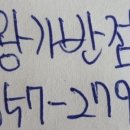 왕가반점
257-279